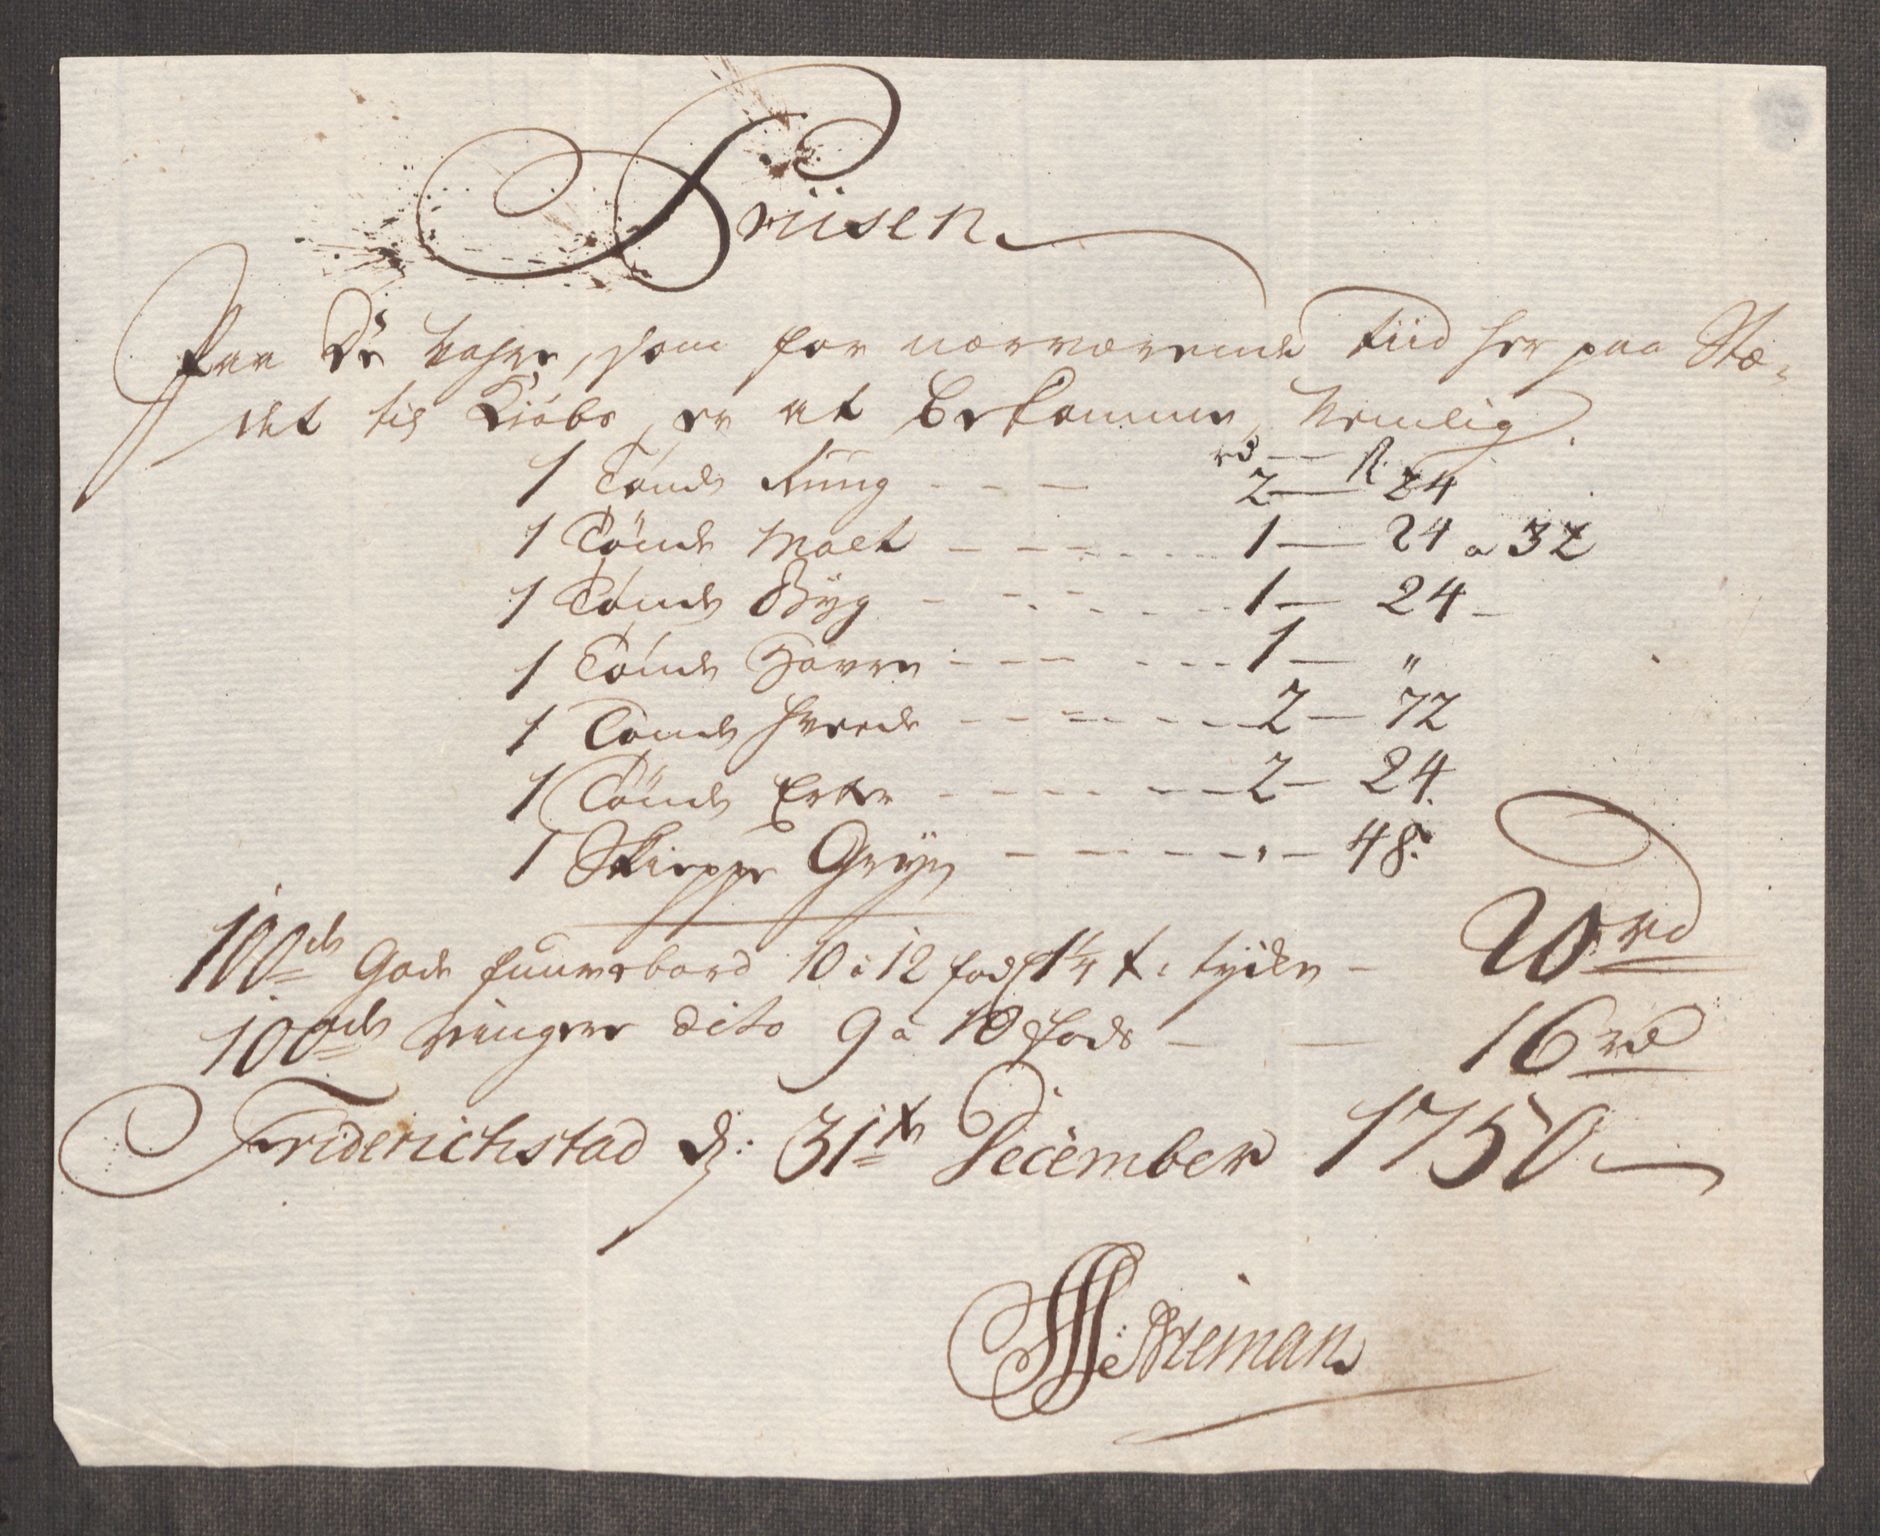 Priisen
Paa De Vahre, som for nærværende tiid her paa Stæ-
det til Kiøbs er at bekomme, Nemlig.
rd — ß.
1 Tønde Rung - - - 2 — 24
1 Tønde Malt - - - 1 — 24 a 32
1 Tønde Byg - - - 1 — 24 -
1 Tønde Havre - - - 1 — "
1 Tønde Hvede - - - 2 — 72
1 Tønde Erter - - - 2 — 24.
1 Skieppe Gryn - - - " — 48.
100de Gode fuurebord 10 a 12 fods 1¼ t: tyche - 20 rd
100de ringere dito 9 a 10 fods — — 16 rd
Friderichstad d: 31te December 1750